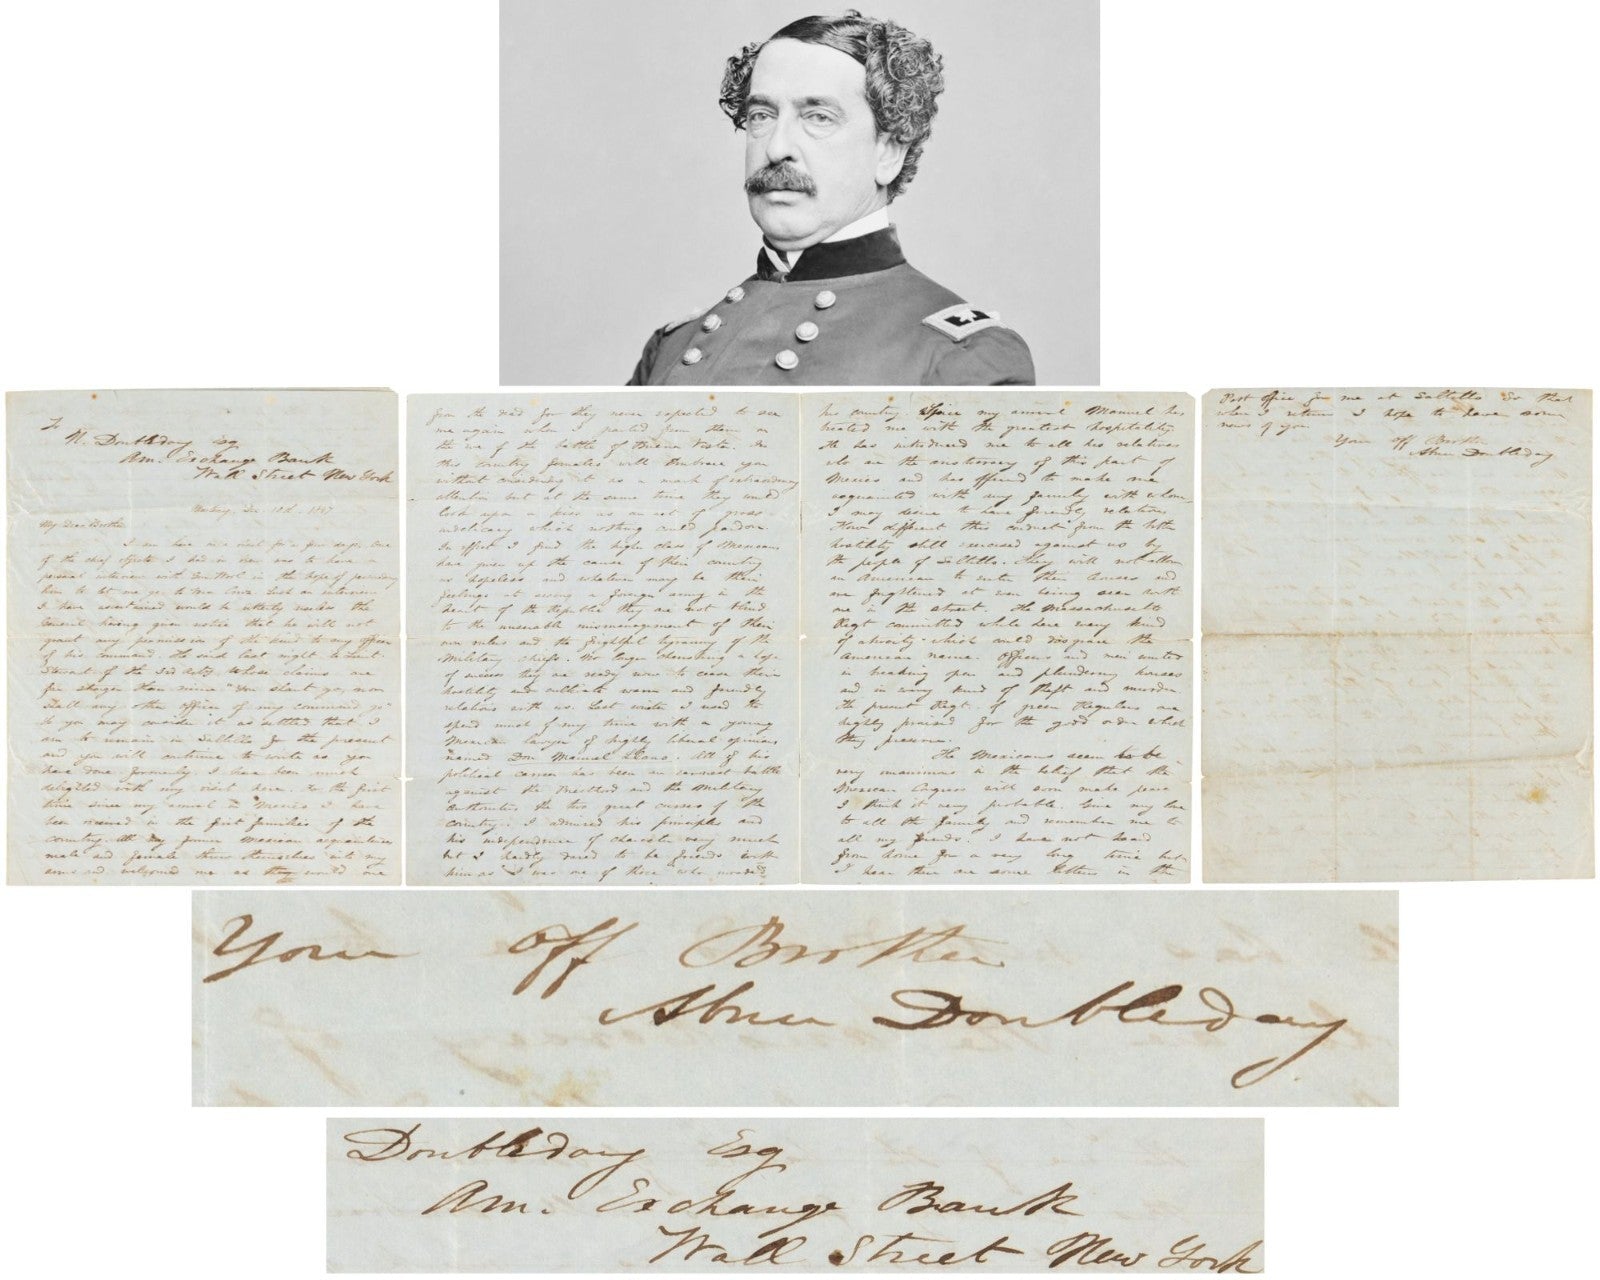 To
N. Doubleday Esq
Am. Exchange Bank
Wall Street New York
Dec. 18th. 1847
My Dear Brother
I am here on a visit for a few days. One
of the chief objects I had in view was to have a
personal interview with Gen Wool in the hope of persuading
him to let me go to Vera Cruz. Such an interview
I have ascertained would be utterly useless the
General having given notice that he will not
grant any permission of the kind to any officer
of his command. He said last night to Lieut.
Stewart of the 3rd Arty whose claims are
far stronger than mine "You shant go, nor
shall any other officer of my command go"
So you may consider it as settled that I
am to remain in Saltillo for the present
and you will continue to write as you
have done formerly. I have been much
delighted with my visit here. For the first
time since my arrival in Mexico I have
been received in the first families of the
country. All my former Mexican acquaintances
male and female threw themselves into my
arms and welcomed me as they would one
from the dead for they never expected to see
me again when I parted from them on
the eve of the battle of Buena Vista. In
this country females will embrace you
without considering it as a mark of extraordinary
attention but at the same time they would
look upon a kiss as an act of gross
indelicacy which nothing could pardon
In effect I find the higher class of Mexicans
have given up the cause of their country
as hopeless and whatever may be their
feelings at seeing a foreign army in the
heart of the Republic they are not blind
to the miserable mismanagement of their
own rulers and the frightful tyranny of the
Military chiefs. No longer cherishing a hope
of success they are ready now to cease their
hostility and cultivate warm and friendly
relations with us. Last winter I used to
spend much of my time with a young
Mexican lawyer of highly liberal opinions
named Don Manuel Llano. All of his
political career has been an earnest battle
against the Priesthood and the Military
Authorities, the two great curses of the
country. I admired his principles and
his independence of character very much
but I hardly dared to be friends with
him as I was one of those who invaded
his country. Since my arrival Manuel has
treated me with the greatest hospitality
He has introduced me to all his relatives
who are the aristocracy of this part of
Mexico and has offered to make me
acquainted with any family with whom
I may desire to have friendly relations
How different this conduct from the bitter
hostility still exercised against us by
the people of Saltillo. They will not allow
an American to enter their houses and
are frightened at even being seen with
me in the street. The Massachusetts
Regt committed while here every kind
of atrocity which could disgrace the
American name. Officers and men united
in breaking open and plundering houses
and in every kind of theft and murder
The present Regt. of green Regulars are
highly praised for the good order which
they preserve.
The Mexicans seem to be
very unanimous in the belief that the
Mexican Congress will soon make peace
I think it very probable. Give my love
to all the family and remember me to
all my friends I have not heard
from home for a very long time but
I hear there are some letters in the
Post Office for me at Saltillo so that
when I return I hope to have some
news of you.
Your Aff Brother
Abner Doubleday
Your Aff Brother
Abner Doubleday
Doubleday Esq
Am. Exchange Bank
Wall Street New York